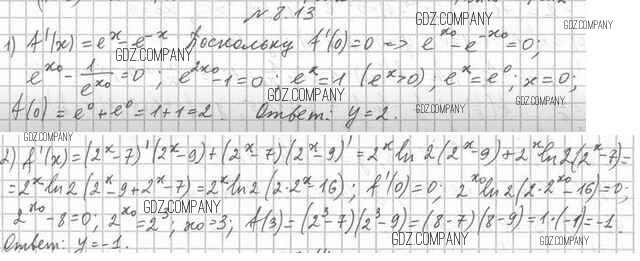 № 8.13
GDZ.COMPANY
GDZ.COMPANY
1) A'(x) = e^x - e^-x Поскольку A'(0) = 0 => e^x₀ - e^-x₀ = 0;
GDZ.COMPANY
e^x₀ - 1/e^x₀ = 0; e^2x₀ - 1 = 0; e^x = 1 (e^x > 0); e^x = e^0; x = 0;
GDZ.COMPANY
GDZ.COMPANY
GDZ.COMPANY
A(0) = e^0 + e^0 = 1 + 1 = 2. Ответ: y = 2.
GDZ.COMPANY
2) A'(x) = (2^x - 7)'(2^x - 9) + (2^x - 7)(2^x - 9)' = 2^x ln 2(2^x - 9) + 2^x ln 2(2^x - 7) =
= 2^x ln 2(2^x - 9 + 2^x - 7) = 2^x ln 2(2·2^x - 16); A'(0) = 0; 2^x₀ ln 2(2·2^x₀ - 16) = 0;
GDZ.COMPANY
2^x₀ - 8 = 0; 2^x₀ = 2^3; x₀ = 3; A(3) = (2^3 - 7)(2^3 - 9) = (8 - 7)(8 - 9) = 1·(-1) = -1.
GDZ.COMPANY
GDZ.COMPANY
Ответ: y = -1.